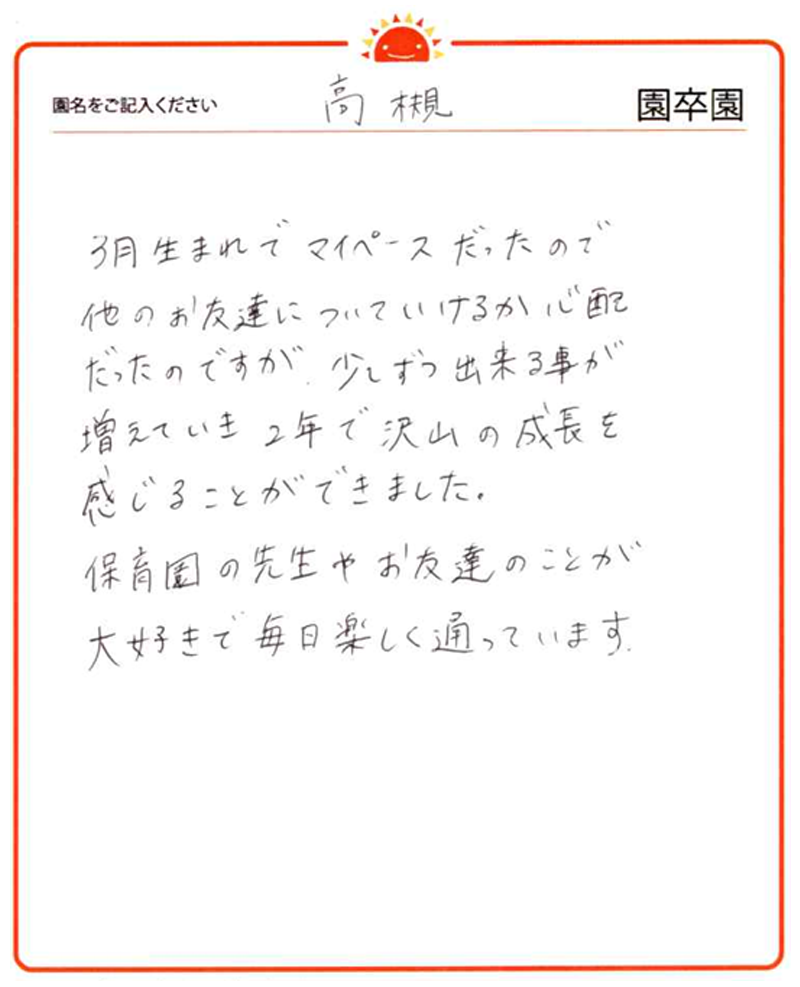 園名をご記入ください 高槻 園卒園
3月生まれでマイペースだったので
他のお友達についていけるか心配
だったのですが、少しずつ出来る事が
増えていき2年で沢山の成長を
感じることができました。
保育園の先生やお友達のことが
大好きで毎日楽しく通っています。